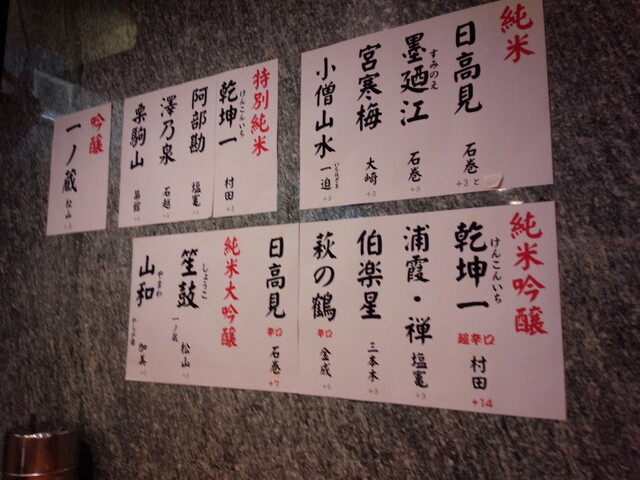 純米
日高見 石巻 +3
墨廼江 すみのえ 石巻 +3
宮寒梅 大崎 +3
小僧山水 一迫 いちはざま +3
特別純米
乾坤一 けんこんいち 村田
阿部勘 塩竈
澤乃泉 石越 +3
栗駒山 築館
吟醸
一ノ蔵 松山
純米吟醸
乾坤一 けんこんいち 超辛口 村田 +14
浦霞・禅 塩竈 +3
伯楽星 三本木 +3
萩の鶴 辛口 金成 +5
日高見 辛口 石巻 +7
純米大吟醸
笙鼓 しょうこ 一ノ蔵 松山
山和 やまわ 加美